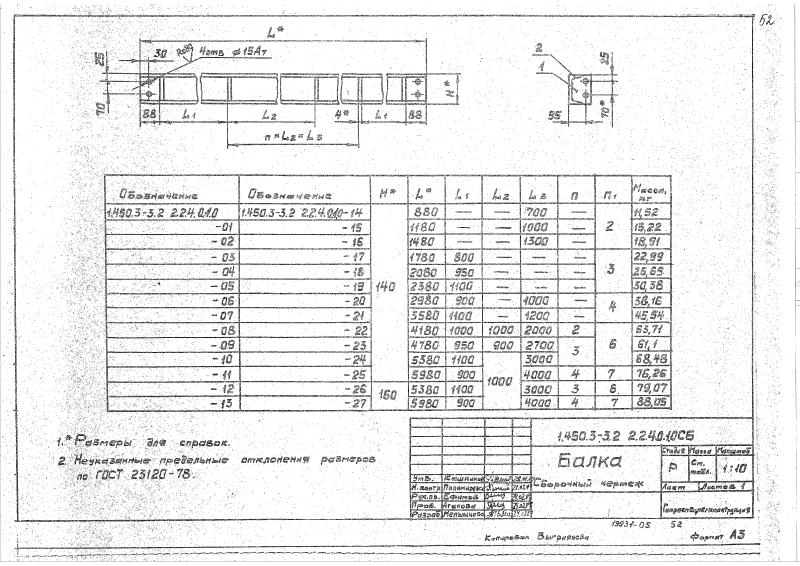 52
L*
30
4отв ф15А7
25
70
88
L1
L2
4*
L1
88
H*
n × L2 = L3
2
1
25
70*
55
Обозначение Обозначение H* L* L1 L2 L3 п п1 Масса, кг
1.450.3-3.2 2.2.4.0.1.0 1.450.3-3.2 2.2.4.0.1.0-14 140 880 — — 700 — 2 11,52
-01 -15 1180 — — 1000 — 15,22
-02 -16 1480 — — 1300 — 18,91
-03 -17 1780 800 — — — 3 22,99
-04 -18 2080 950 — — — 26,69
-05 -19 2380 1100 — — — 30,38
-06 -20 2980 900 — 1000 — 4 38,16
-07 -21 3580 1100 — 1200 — 45,54
-08 -22 4180 1000 1000 2000 2 6 53,71
-09 -23 4780 950 900 2700 3 61,1
-10 -24 5380 1100 1000 3000 68,48
-11 -25 5980 900 4000 4 7 76,26
-12 -26 160 5380 1100 3000 3 6 79,07
-13 -27 5980 900 4000 4 7 88,05
1.* Размеры для справок.
2. Неуказанные предельные отклонения размеров
по ГОСТ 23120-78.
1.450.3-3.2 2.2.4.0.1.0СБ
Балка
Сборочный чертеж
Стадия Масса Масштаб
Р См. табл. 1:10
Лист Листов 1
Утв.
Н.контр. Пономарева
Рук.гр. Ефимов
Пров. Агапова
Разраб. Мельникова
19031-05 52
Копировал Выгриянова
Формат А3